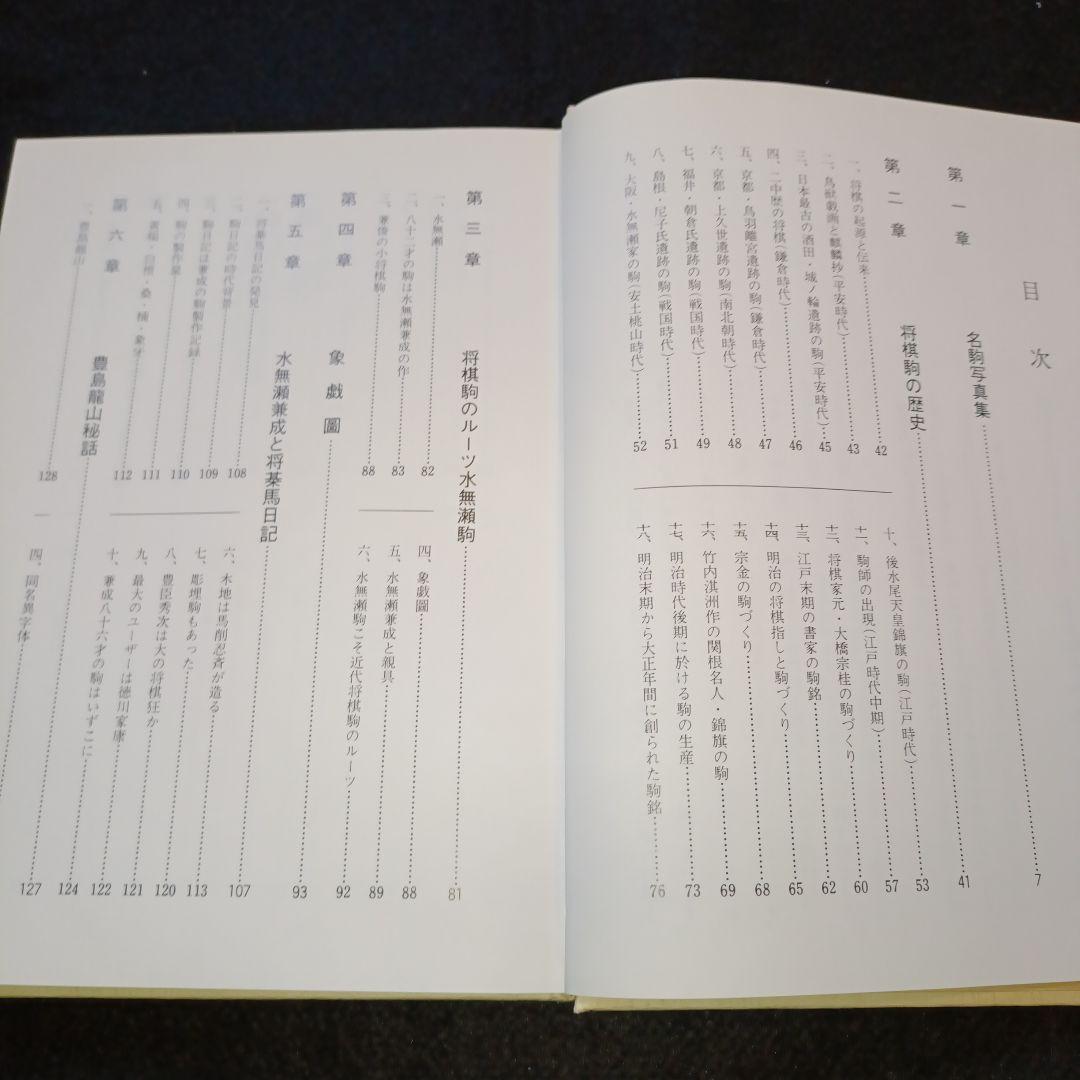 目次
第一章 名駒写真集 7
第二章 将棋駒の歴史 41
一、将棋の起源と伝来 42
二、鳥獣戯画と麒麟抄(平安時代) 43
三、日本最古の酒田・城ノ輪遺跡の駒(平安時代) 45
四、二中歴の将棋(鎌倉時代) 46
五、京都・鳥羽離宮遺跡の駒(鎌倉時代) 47
六、京都・上久世遺跡の駒(南北朝時代) 48
七、福井・朝倉氏遺跡の駒(戦国時代) 49
八、島根・尼子氏遺跡の駒(戦国時代) 51
九、大阪・水無瀬家の駒(安土桃山時代) 52
十、後水尾天皇錦旗の駒(江戸時代) 53
十一、駒師の出現(江戸時代中期) 57
十二、将棋家元・大橋宗桂の駒づくり 60
十三、江戸末期の書家の駒銘 62
十四、明治の将棋指しと駒づくり 65
十五、宗金の駒づくり 68
十六、竹内淇洲作の関根名人・錦旗の駒 69
十七、明治時代後期に於ける駒の生産 73
十八、明治末期から大正年間に創られた駒銘 76
第三章 将棋駒のルーツ水無瀬駒 81
一、水無瀬 82
二、八十二才の駒は水無瀬兼成の作 83
三、兼俊の小将棋駒 88
四、象戯圖 88
五、水無瀬兼成と親具 89
六、水無瀬駒こそ近代将棋駒のルーツ 92
第四章 象戯圖 93
第五章 水無瀬兼成と将棊馬日記 107
一、将棊馬日記の発見 108
二、駒日記の時代背景 109
三、駒日記は兼成の駒製作記録 110
四、駒の製作量 111
五、黄楊・白檀・桑・楠・象牙 112
六、木地は馬削忍斉が造る 113
七、彫埋駒もあった 120
八、豊臣秀次は大の将棋狂か 121
九、最大のユーザーは徳川家康 122
十、兼成八十六才の駒はいずこに 124
第六章 豊島龍山秘話 127
一、豊島龍山 128
四、同名異字体